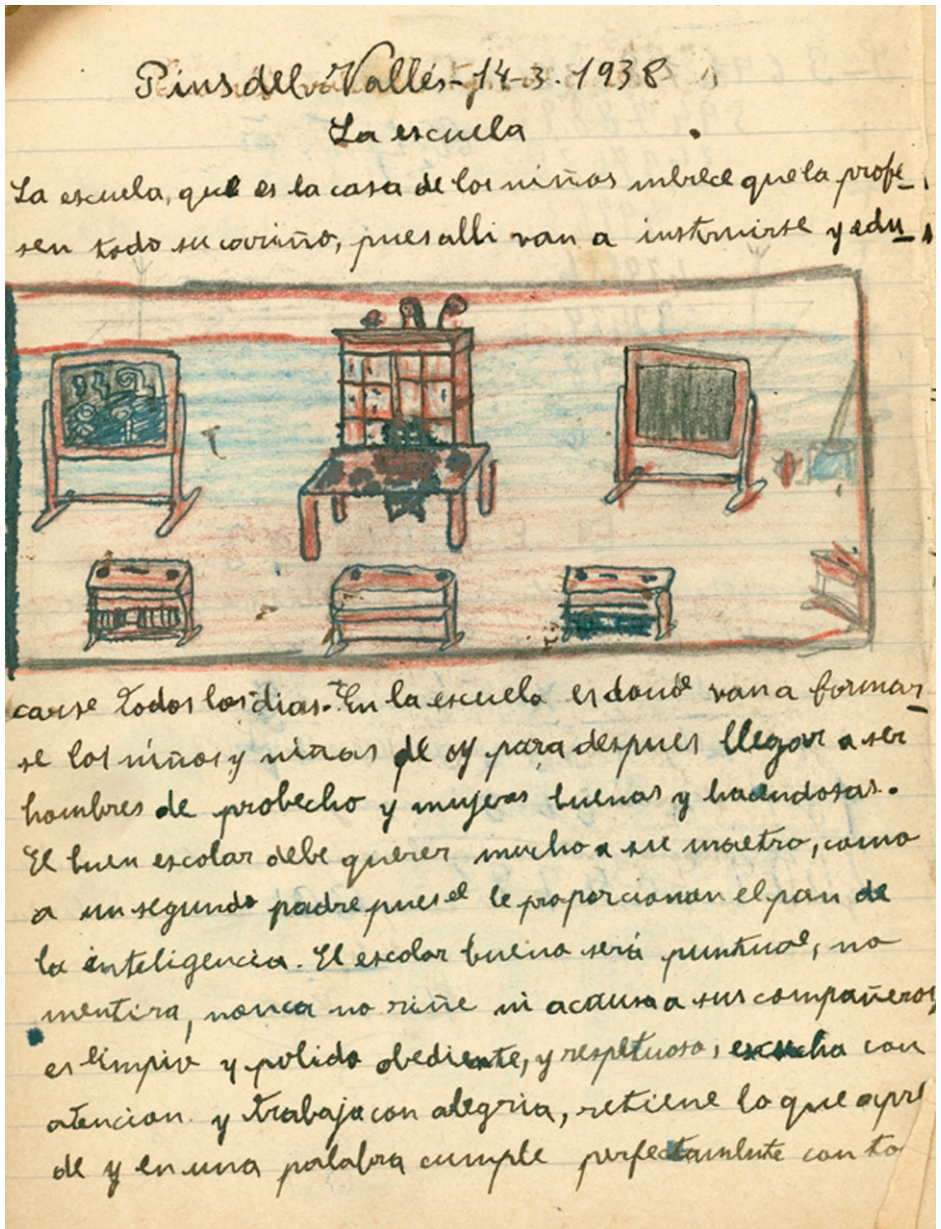 Pins del Vallés-14-3. 1938
La escuela
La escuela, que es la casa de los niños mbrece que la profe-
sen todo su cariño, pues alli van a instruirse y edu-
carse todos los dias. En la escuela es donde van a formar-
se los niños y niñas de oy para despues llegar a ser
hombres de probecho y mujeres buenas y hacendosas.
El buen escolar debe querer mucho a su maetro, como
a un segundo padre pues el le proporcionan el pan de
la inteligencia. El escolar bueno será puntual, no
mentira, nonca no riñe ni acausa a sus compañeros,
es limpio y pulido obediente, y respetuoso, escucha con
atencion y trabaja con alegria, retiene lo que apre
de y en una palabra cumple perfectamente con to